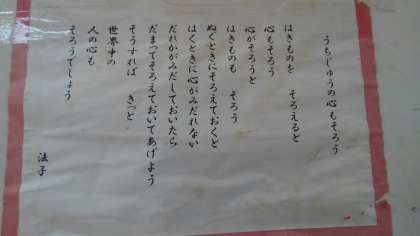 うちじゅうの心もそろう
はきものを そろえると
心もそろう
心がそろうと
はきものも そろう
ぬぐときにそろえておくと
はくときに心がみだれない
だれかがみだしておいたら
だまってそろえておいてあげよう
そうすれば きっと
世界中の
人の心も
そろうでしょう
法子